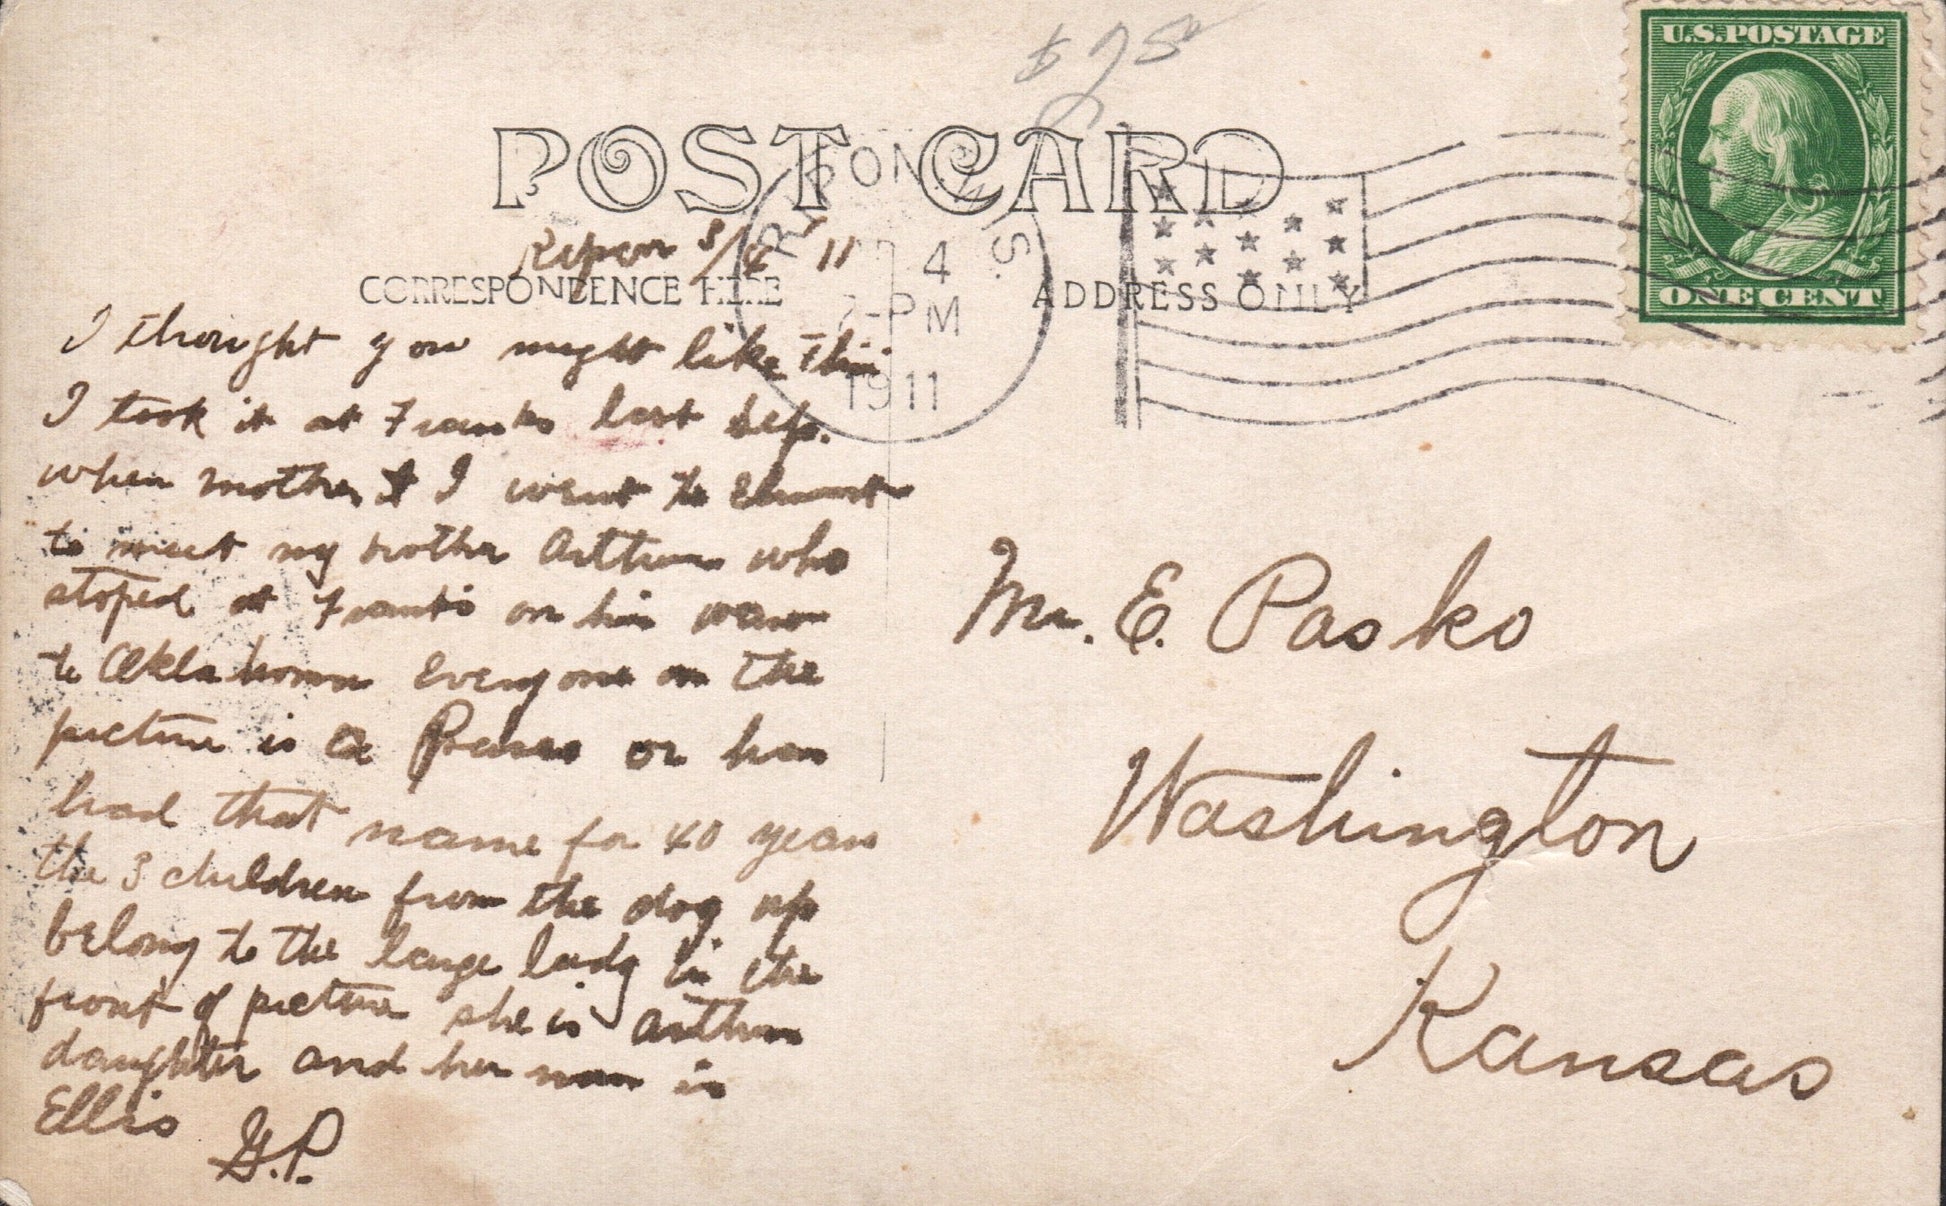 $ 7 50
U.S. POSTAGE
ONE CENT
POST CARD
RIPON, WIS.
4
-PM
1911
Ripon 3/4 '11
CORRESPONDENCE HERE
ADDRESS ONLY
I thought you might like this
I took it at Franks last Sep.
when mother & I went to
to meet my brother Arthur who
stoped at Franks on his way
to Oklahoma Everyone on the
picture is a or has
had that name for 40 years
the 3 children from the dog up
belong to the large lady in the
front of picture she is Arthurs
daughter and her name is
Ellis G.P.
Mr. E. Pasko
Washington
Kansas